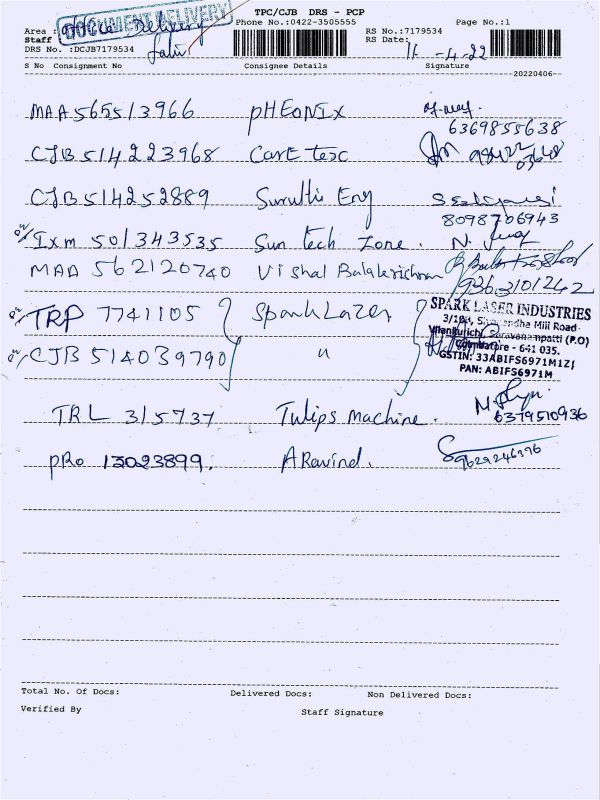 DOCUMENT DELIVERY
TPC/CJB DRS - PCP
Area : Docu Delivery Phone No.:0422-3505555 RS No.:7179534 Page No.:1
Staff RS Date: 11-4-22
DRS No. :DCJB7179534
S No Consignment No Consignee Details Signature
20220406
MAA 565513966 PHEONIX
6369855638
CJB 514223968 Care tesc
CJB 514252889 Sruthi Eng
8098706943
Ixm 501343535 Sun tech Zone. N.
MAA 562120740 Vishal Balakrishnan
9363101242
TRP 7741105 Spark Lazer
CJB 514039790 "
SPARK LASER INDUSTRIES
Mill Road
Vilankurichi, Saravanampatti (P.O)
Coimbatore - 641 035.
GSTIN: 33ABIFS6971M1ZJ
PAN: ABIFS6971M
TRL 315737 Tulips Machine.
6379510936
PRO 13023899. ARavind.
9629246196
Total No. Of Docs: Delivered Docs: Non Delivered Docs:
Verified By Staff Signature